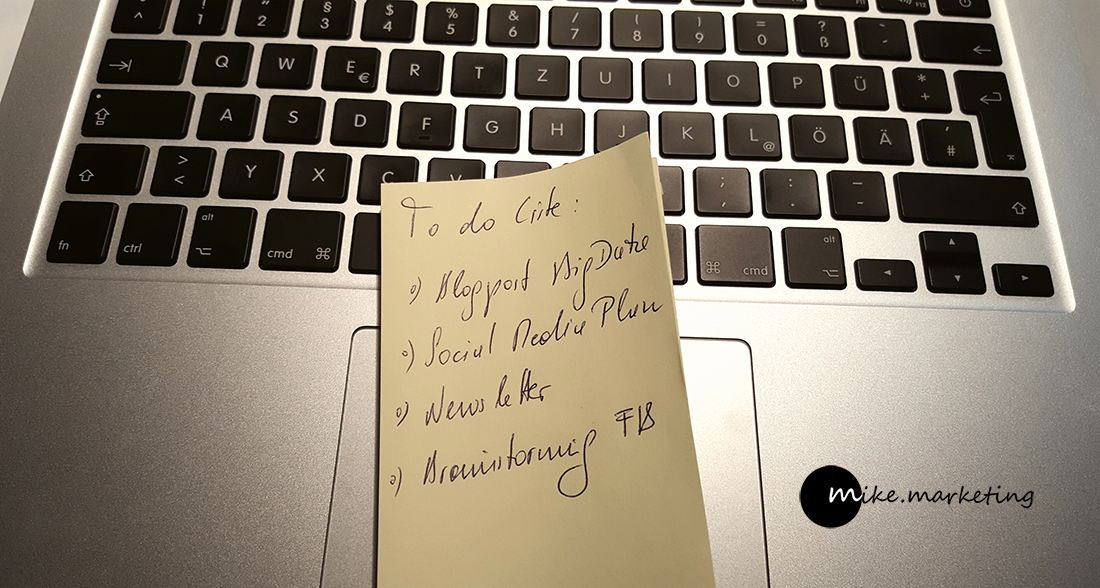 ! " § $ % & / ( ) = ?
^ 1 2 3 4 5 6 7 8 9 0 ß
Q W E € R T Z U I O P Ü * +
A S D F G H J K L @ Ö Ä ' #
> < Y X C V ; , : . _ -
fn ctrl alt cmd cmd alt
To do Liste:
o) Blogpost BigData
o) Social Media Plan
o) Newsletter
o) Brainstorming FB
mike.marketing